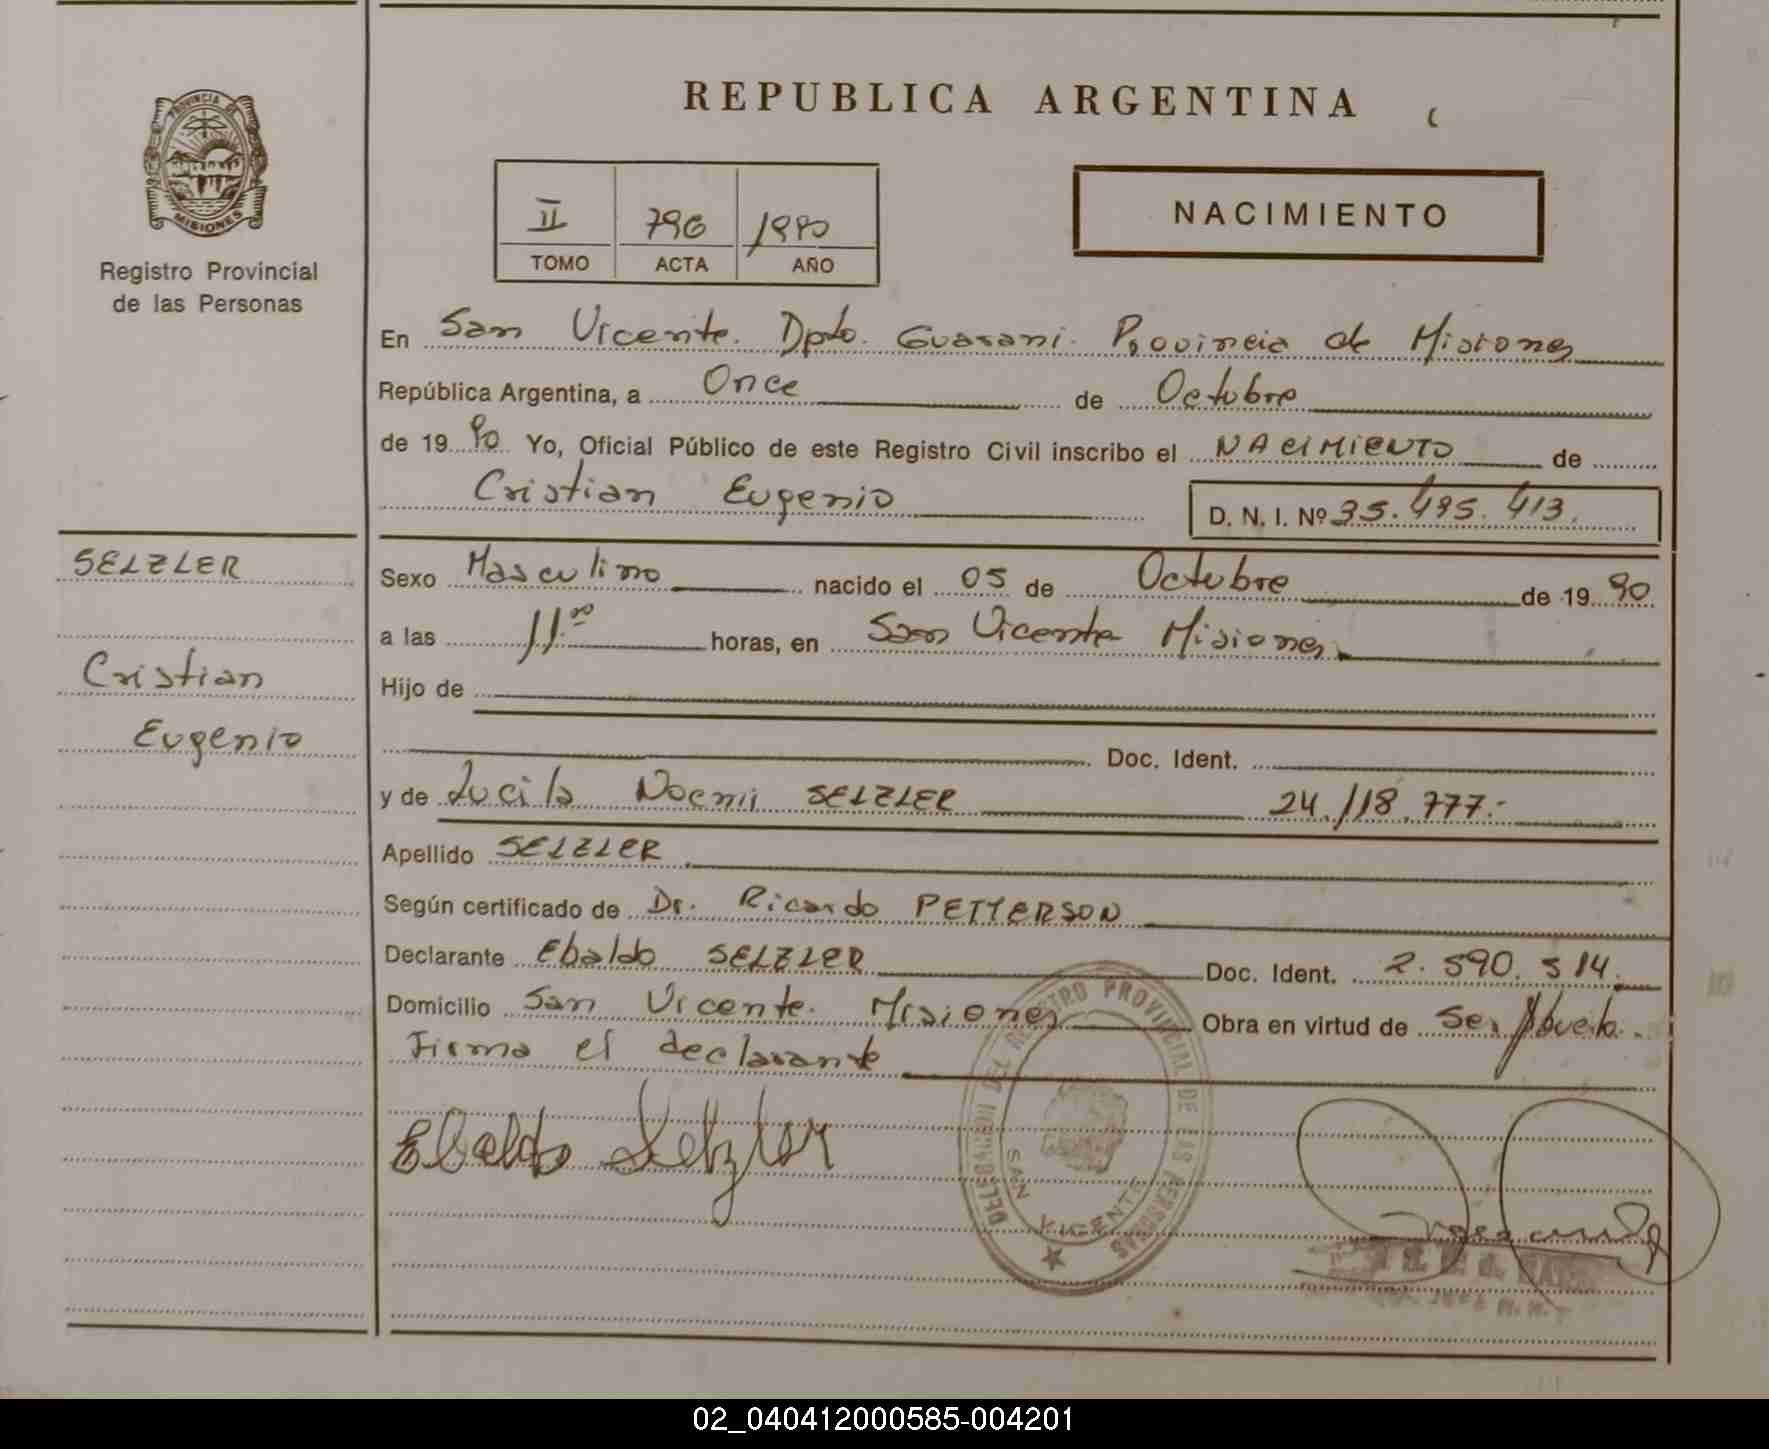 REPUBLICA ARGENTINA
PROVINCIA DE
MISIONES
Registro Provincial
de las Personas
II 796 1990
TOMO ACTA AÑO
NACIMIENTO
En San Vicente. Dpto. Guarani. Provincia de Misiones
República Argentina, a Once de Octubre
de 1990 Yo, Oficial Público de este Registro Civil inscribo el NACIMIENTO de
Cristian Eugenio D. N. I. Nº 35.495.413.
SELZLER
Cristian
Eugenio
Sexo Masculino nacido el 05 de Octubre de 1990
a las 11.00 horas, en San Vicente Misiones
Hijo de
Doc. Ident.
y de Lucila Noemi SELZLER 24.118.777.-
Apellido SELZLER
Según certificado de Dr. Ricardo PETTERSON
Declarante Ebaldo SELZLER Doc. Ident. 2.590.514.
Domicilio San Vicente. Misiones Obra en virtud de Ser Abuelo.
Firma el declarante
Ebaldo Selzler
DELEGACION DEL REGISTRO PROVINCIAL DE LAS PERSONAS
SAN VICENTE
02_040412000585-004201